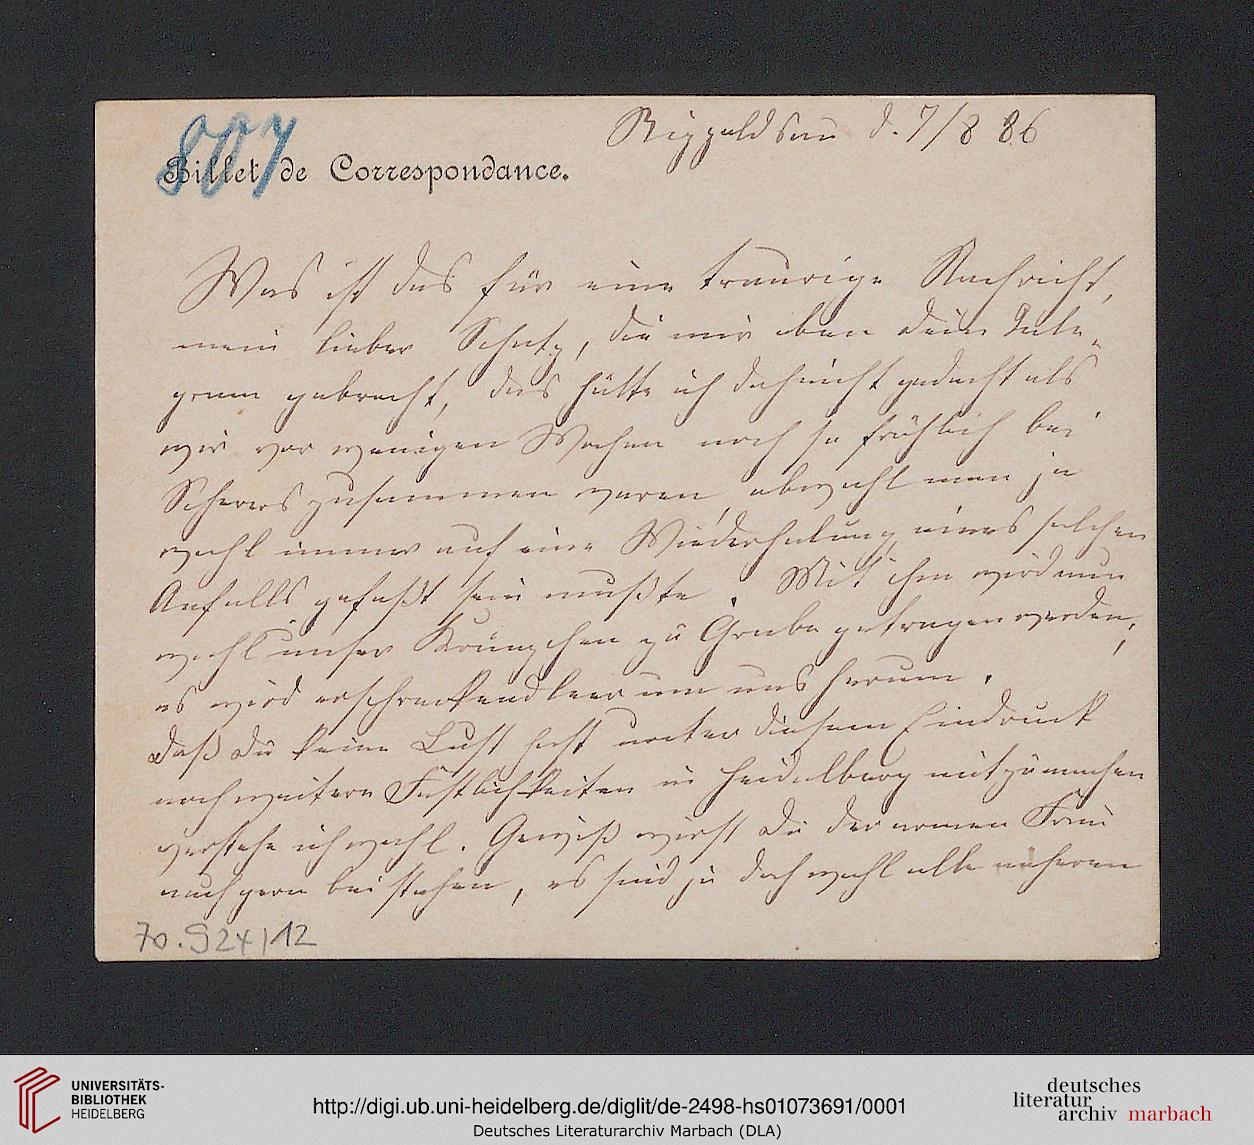 807
Rippoldsau d. 7/8 86
Billet de Correspondance.
Was ist das für eine traurige Nachricht,
mein lieber Schatz, die mir eben dein Tele-
gram gebracht, das hätte ich doch nicht gedacht als
wir vor wenigen Wochen noch so fröhlich bei
Scherers zusammen waren, obwohl man ja
wohl immer auf eine Wiederholung eines solchen
Anfalls gefaßt sein mußte. Mit ihm wird nun
wohl unser Kränzchen zu Grabe getragen werden,
es wird erschreckend leer um uns herum.
Daß du keine Lust hast unter diesem Eindruck
noch weitere Festlichkeiten in Heidelberg mitzumachen
verstehe ich wohl. Gewiß wirst du der armen Frau
auch gern beistehen, es sind ja doch wohl alle näheren
70.924/12
UNIVERSITÄTS-
BIBLIOTHEK
HEIDELBERG
http://digi.ub.uni-heidelberg.de/diglit/de-2498-hs01073691/0001
Deutsches Literaturarchiv Marbach (DLA)
deutsches
literatur
archiv marbach